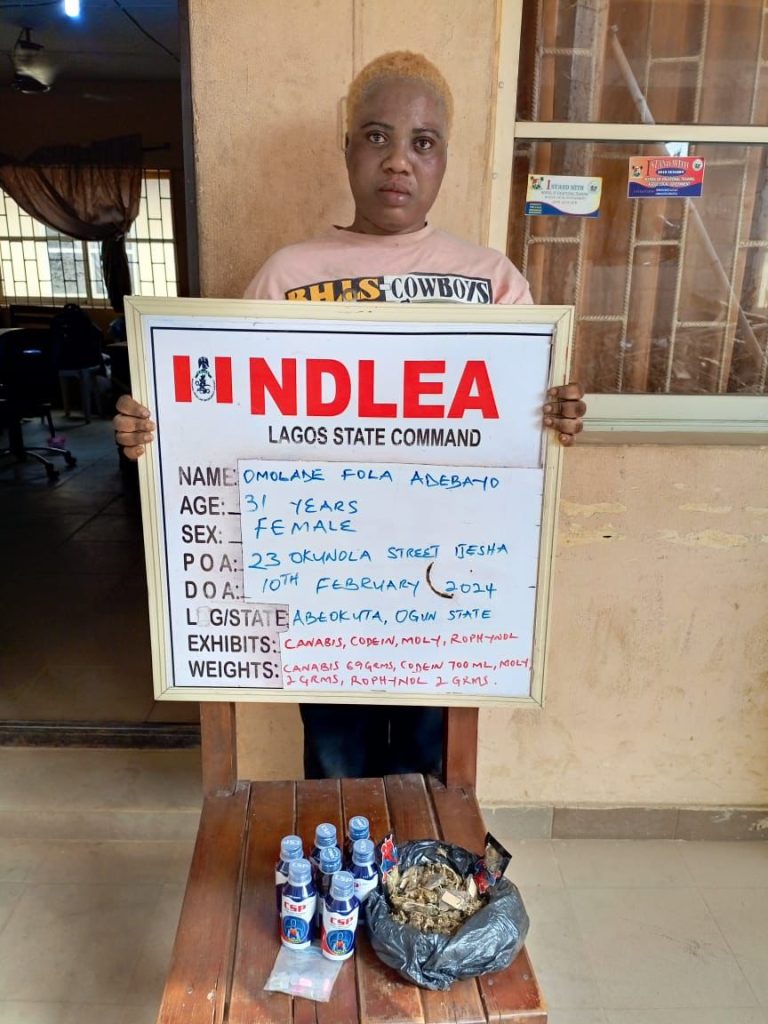 BHIS-COWBOYS
NDLEA
LAGOS STATE COMMAND
NAME: OMOLADE FOLA ADEBAYO
AGE: 31 YEARS
SEX: FEMALE
P O A: 23 OKUNOLA STREET IJESHA
D O A: 10TH FEBRUARY 2024
LOG/STATE ABEOKUTA, OGUN STATE
EXHIBITS: CANABIS, CODEIN, MOLY, ROPHYNOL
WEIGHTS: CANABIS 69GRMS, CODEIN 700ML, MOLY,
2GRMS, ROPHYNOL 2 GRMS.
CSP
CSP